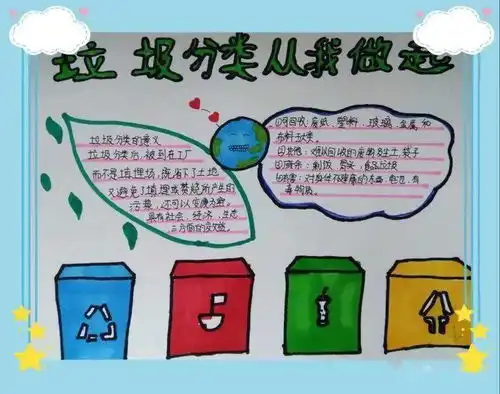 垃圾分类从我做起
垃圾分类的意义
垃圾分类后,被到在工厂
而不是填埋场,既省下了土地
又避免了填埋或焚烧所产生的
污染,还可以变废为宝。
具有社会、经济、生态
三方面的效益。
①可回收:废纸、塑料、玻璃、金属和
布料五类。
②其他:难以回收的废弃
③厨余:剩饭
④有害:对
有毒物质。